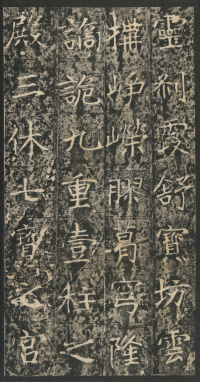 靈刹霞舒寶坊雲
構崢嶸膠葛穹隆
譎詭九重壹柱之
殿三休七寶之宮